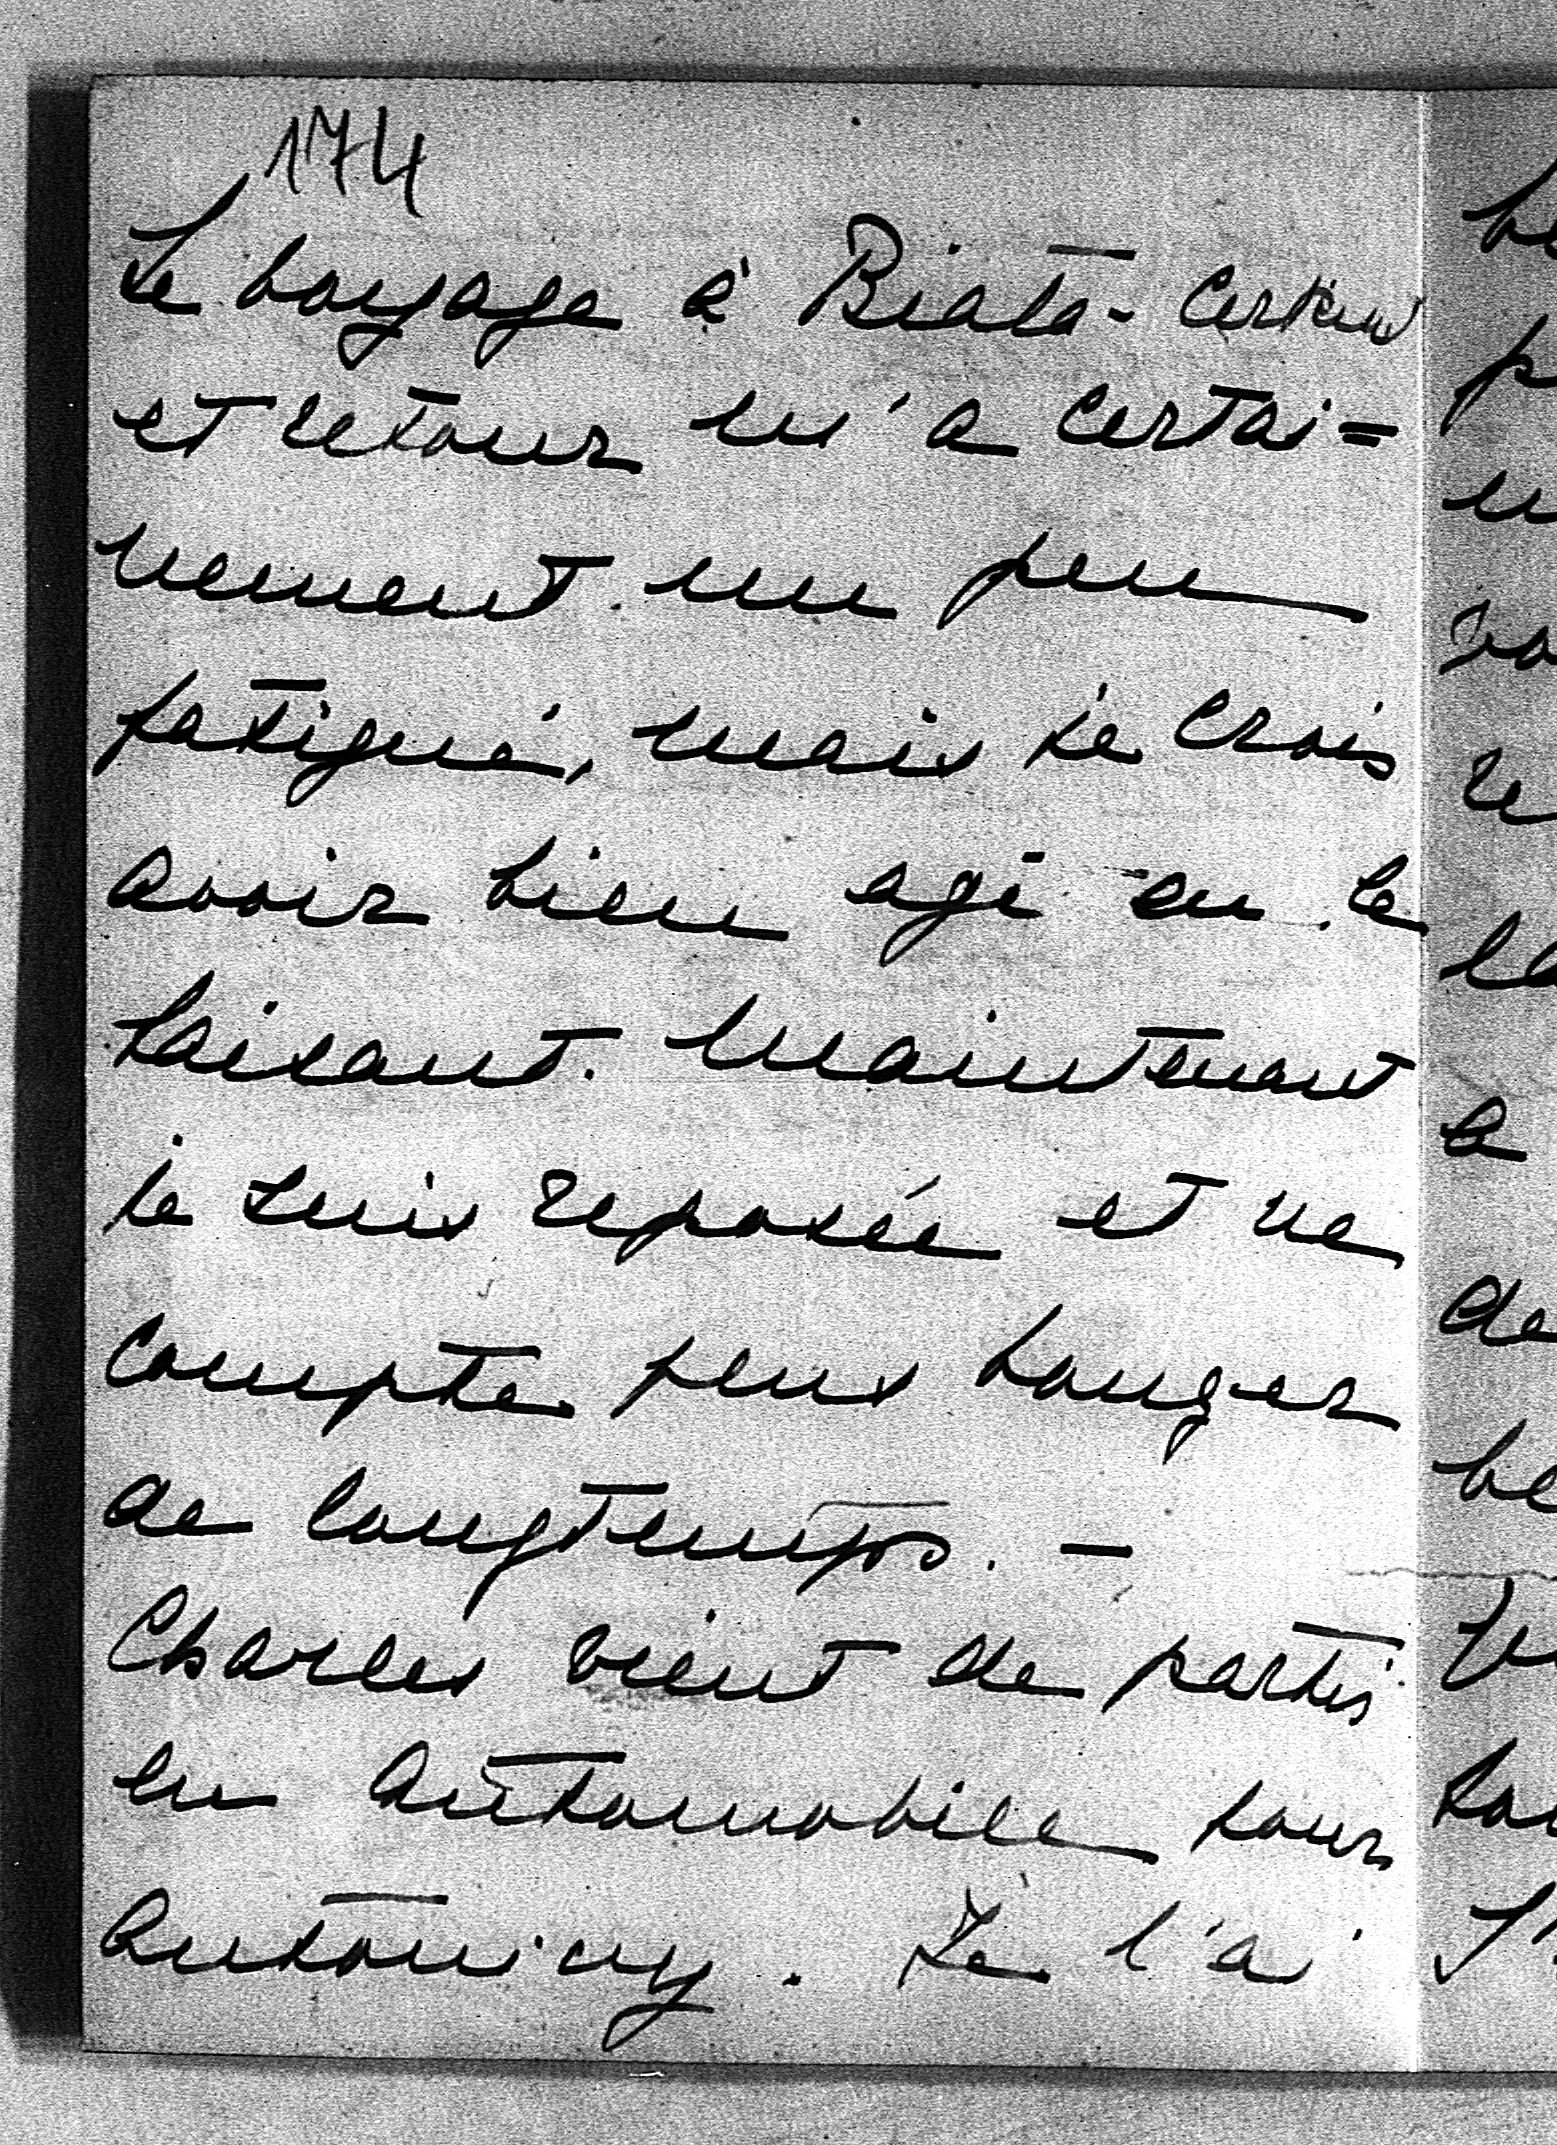 174
Le voyage à Biała-Cerkiew
et retour m'a certai=
nement un peu
fatigué, mais je crois
avoir bien agi en le
faisant. Maintenant
je suis reposée et ne
compte plus bouger
de longtemps. –
Charles vient de partir
en automobile pour
Antoniny. Je l'ai